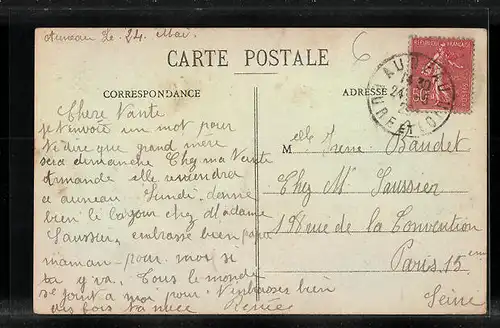 Auneau le 24 Mai
CARTE POSTALE
CORRESPONDANCE
ADRESSE
Chere Tante
je t'envoie un mot pour
te dire que grand mère
sera dimanche Chez ma Tante
Armande elle reviendra
a auneau Lundi. donne
bien le bonjour chez Madame
Saussier, embrasse bien papa
maman pour moi si
tu y va. Tous le monde
se joint a moi pour t'embrasser bien
dis fois ta niece Renée
M elle Irene Baudet
Chez Mr Saussier
198 rue de la Convention
Paris 15 eme
Seine
AUNEAU
14 30
24
EURE ET LOIR